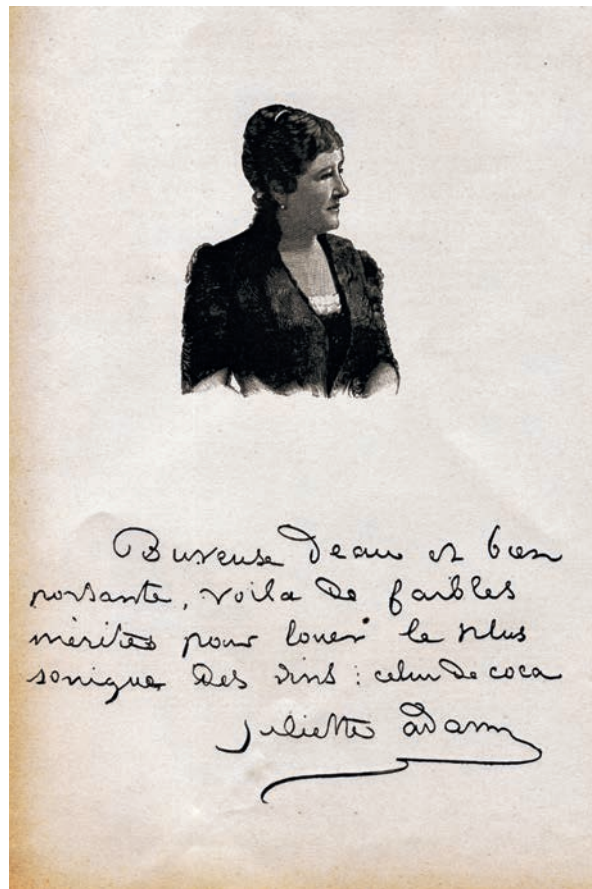 Buveuse d'eau et bien
portante, voilà de faibles
mérites pour louer le plus
tonique des vins : celui de coca
Juliette Adam